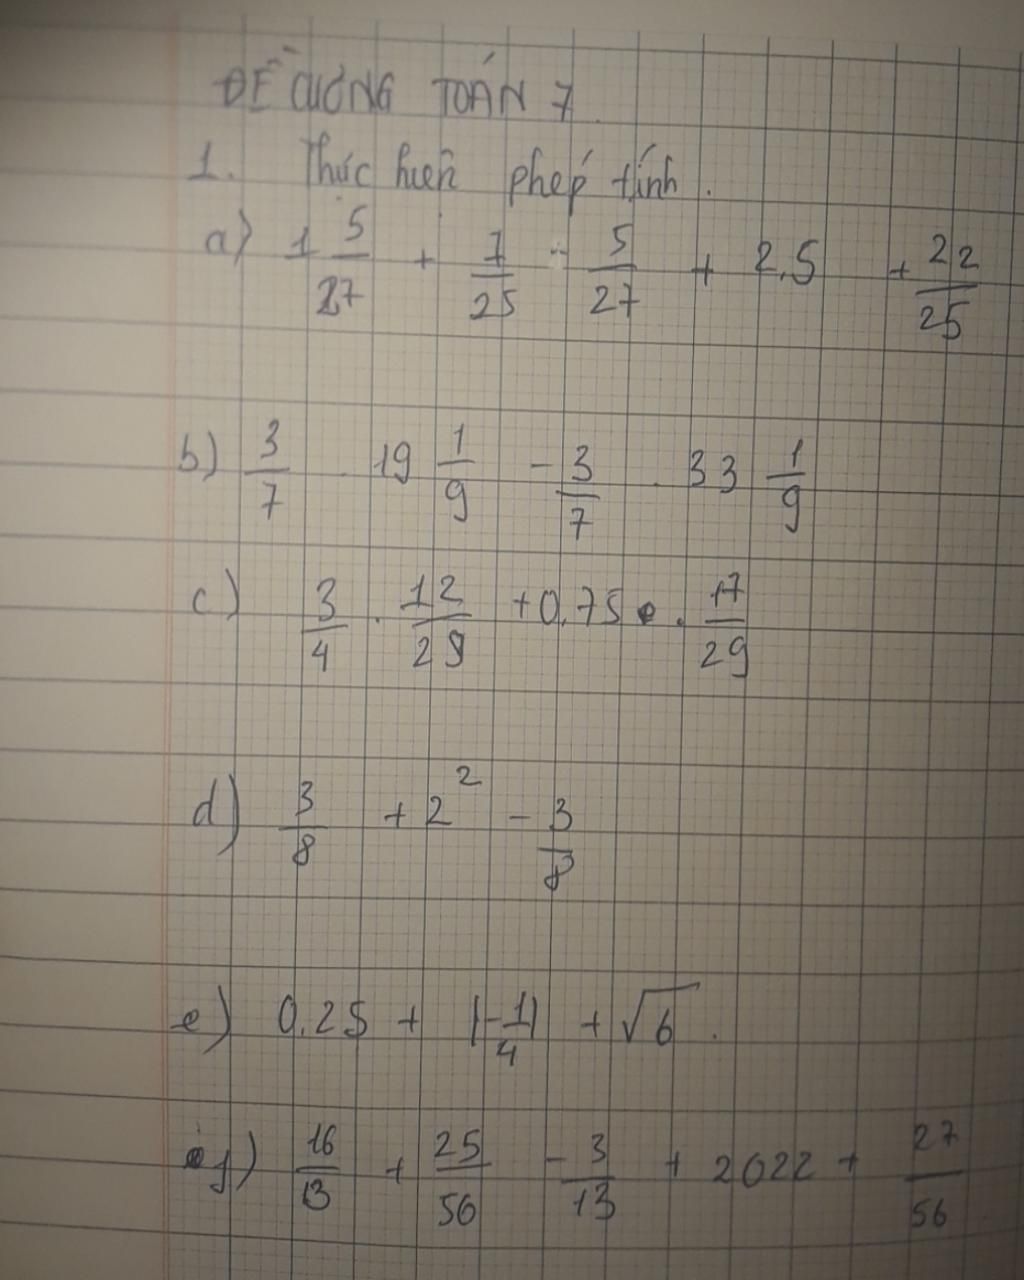 ĐỀ CƯƠNG TOÁN 7
1. Thực hiện phép tính.
a) 1 5/27 + 1/25 - 5/27 + 2,5 + 22/25
b) 3/7 . 19 1/9 - 3/7 . 33 1/9
c) 3/4 . 12/29 + 0,75 . 17/29
d) 3/8 + 2² - 3/8
e) 0,25 + |-1/4| + √6.
f) 16/13 + 25/56 - 3/13 + 2022 + 27/56